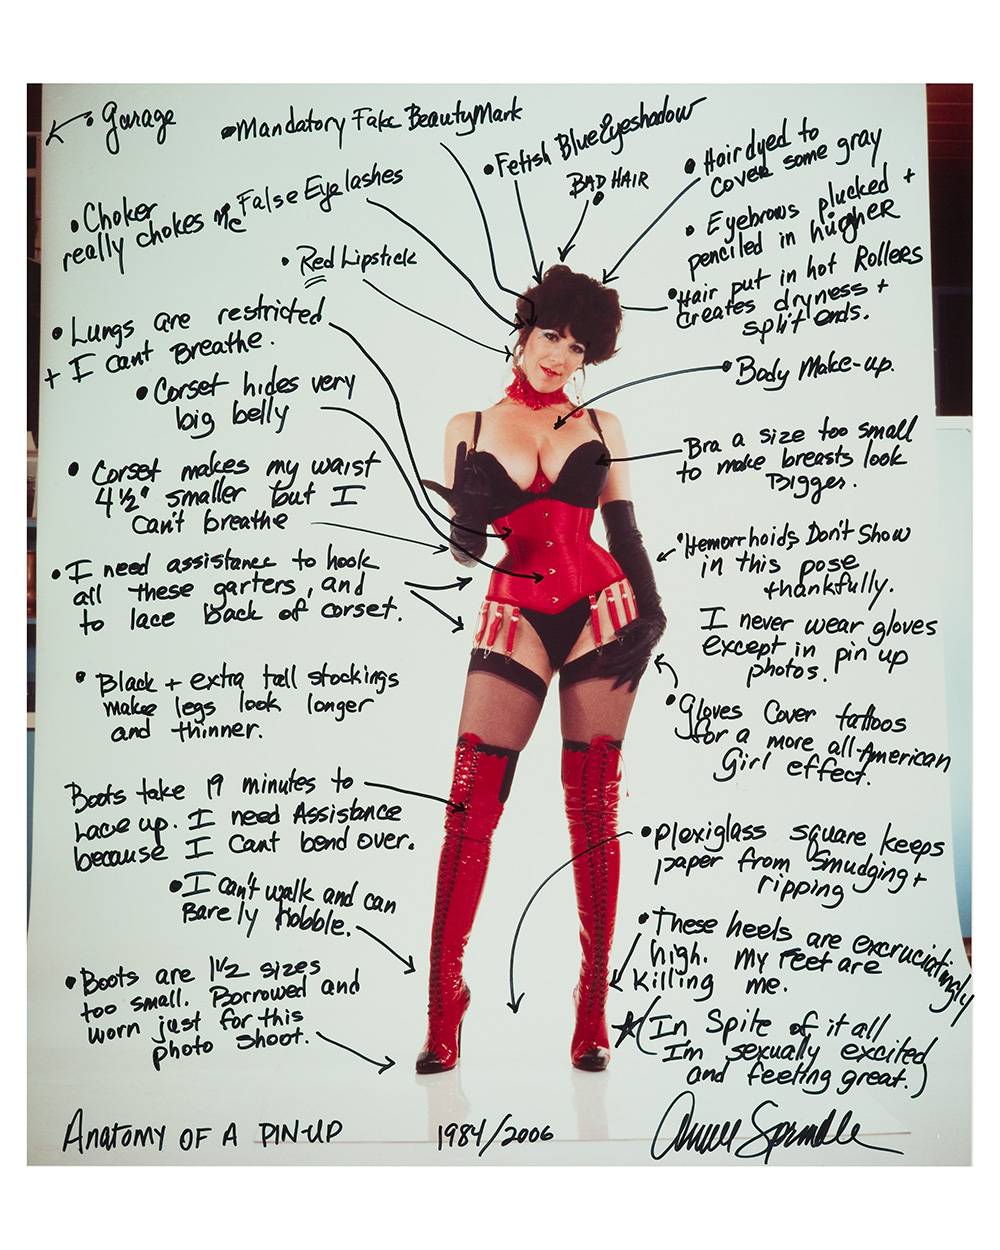 • Garage
• Mandatory Fake Beauty Mark
• Fetish Blue Eyeshadow
BAD HAIR
•
• Hair dyed to
cover some gray
• Choker
really chokes me
False Eyelashes
• Eyebrows plucked +
penciled in higher
• Red Lipstick
• Hair put in hot Rollers
creates dryness +
split ends.
• Lungs are restricted
+ I cant Breathe.
• Corset hides very
big belly
• Body Make-up.
• Bra a size too small
to make breasts look
Bigger.
• Corset makes my waist
4 1/2" smaller but I
can't breathe
• Hemorrhoids Don't Show
in this pose
thankfully.
• I need assistance to hook
all these garters, and
to lace back of corset.
I never wear gloves
except in pin up
photos.
• Black + extra tall stockings
make legs look longer
and thinner.
• Gloves Cover tattoos
for a more all-American
Girl effect.
Boots take 19 minutes to
Lace up. I need Assistance
because I Cant bend over.
• plexiglass square keeps
paper from smudging +
ripping
• I can't walk and can
Barely hobble.
• These heels are excruciatingly
high. My Feet are
killing me.
• Boots are 1 1/2 sizes
too small. Borrowed and
worn just for this
photo shoot.
★ (In Spite of it all
I'm sexually excited
and feeling great.)
ANATOMY OF A PIN-UP
1984/2006
Annie Sprinkle